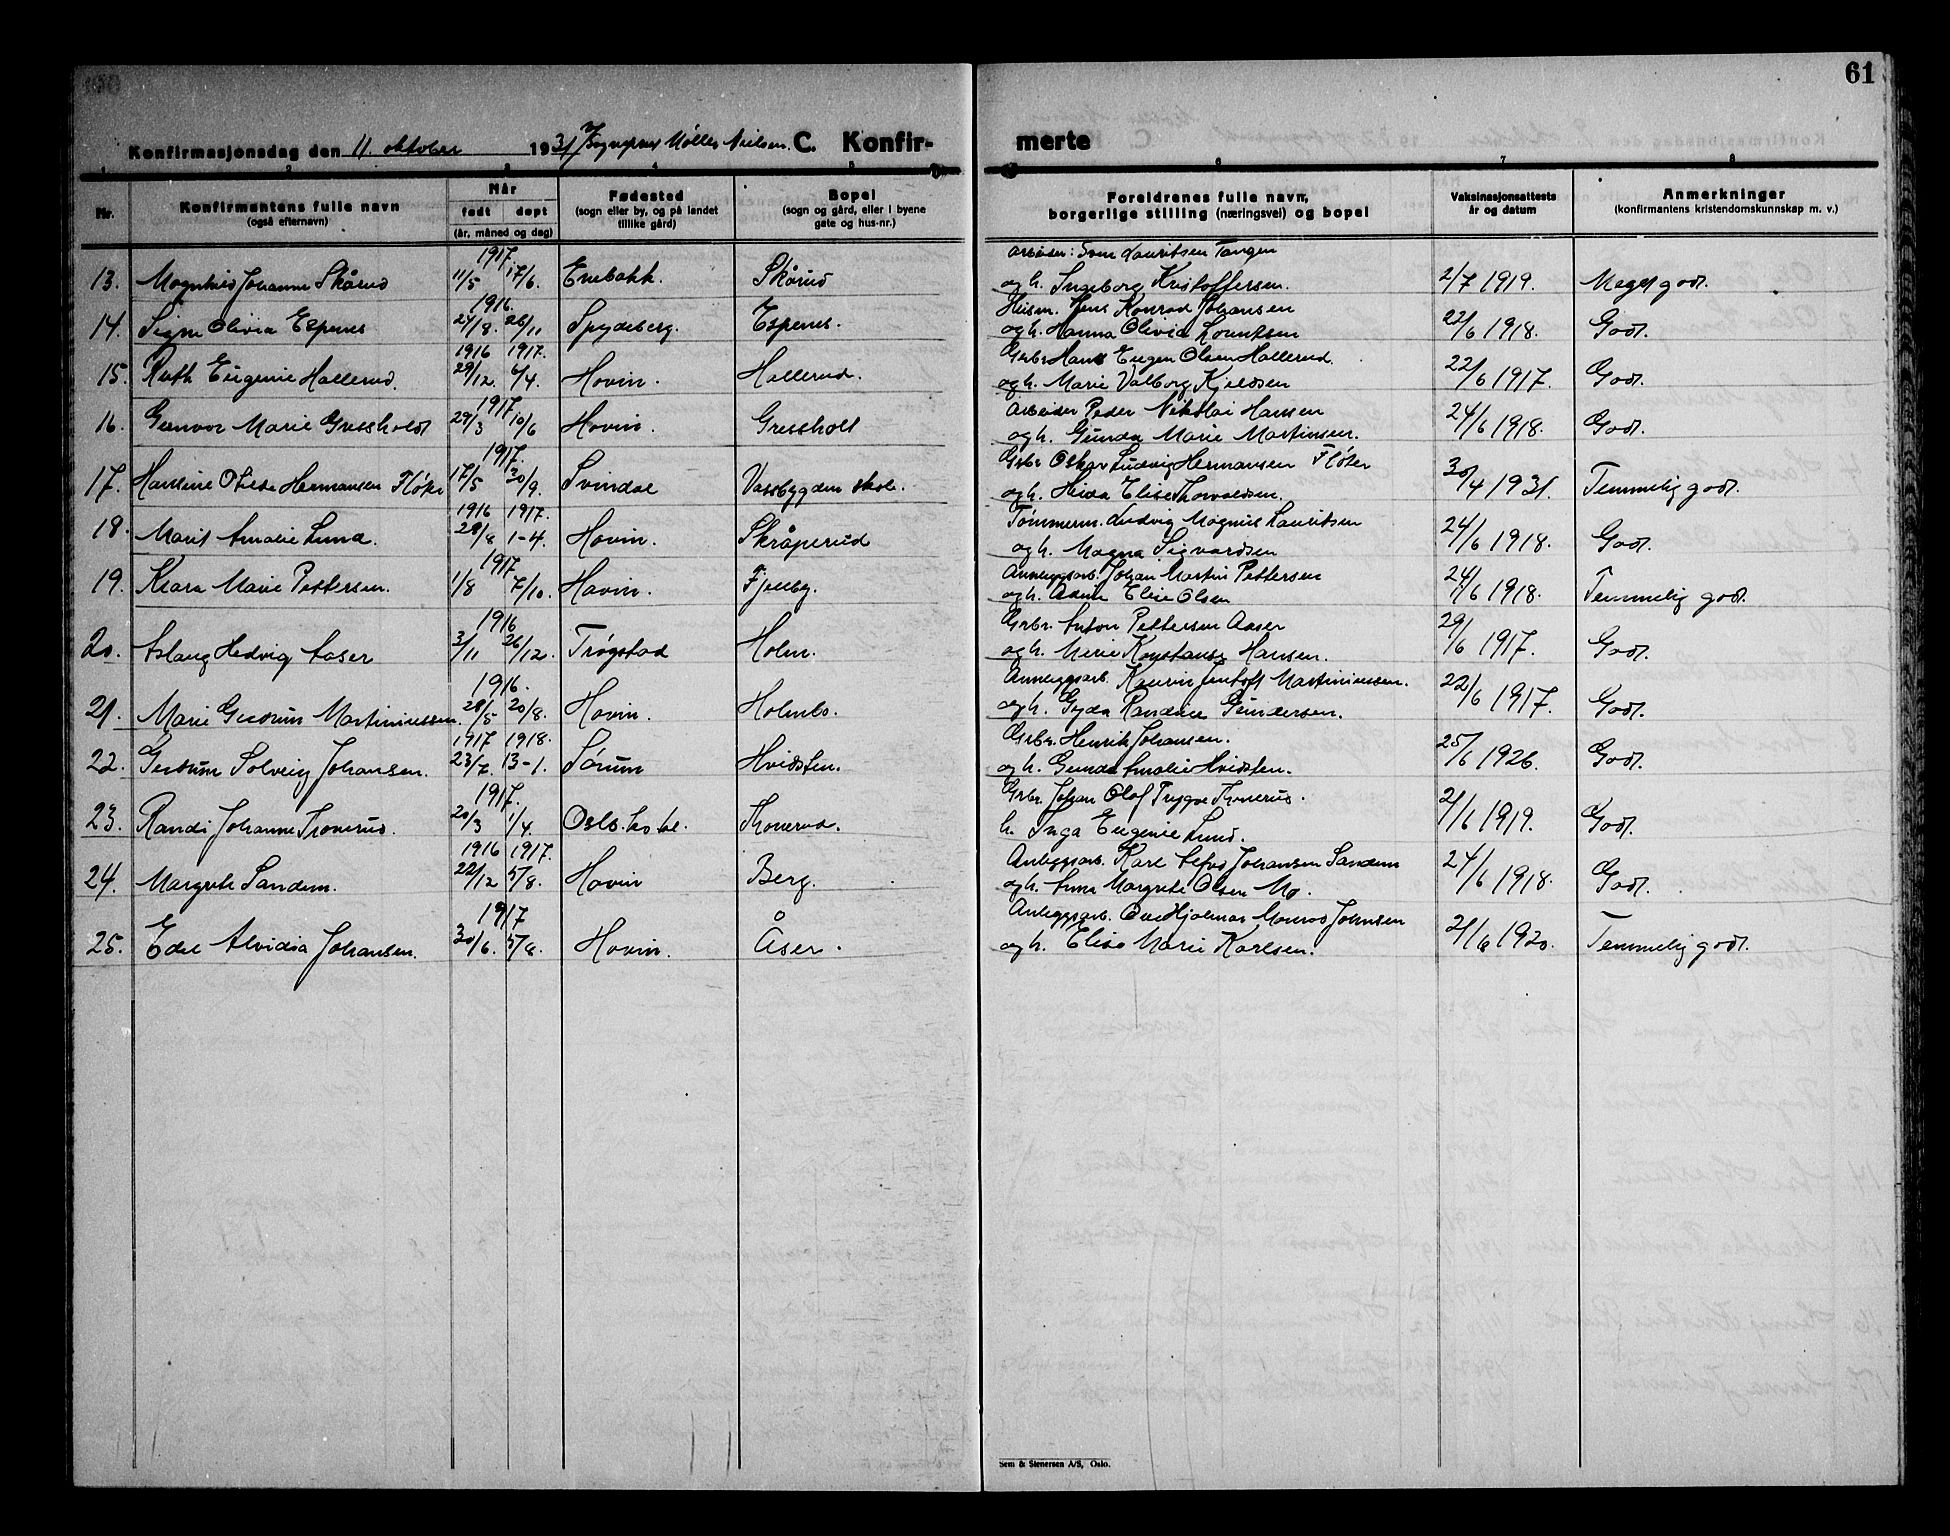 61
Konfirmasjonsdag den 11. oktober 1931 Møller Nielsen. C. Konfir-
merte
1 2 3 4 5
6 7 8
Nr.
Konfirmantens fulle navn
(også efternavn)
Når
født døpt
(år, måned og dag)
Fødested
(sogn eller by, og på landet
tillike gård)
Bopel
(sogn og gård, eller i byene
gate og hus-nr.)
Foreldrenes fulle navn,
borgerlige stilling (næringsvei) og bopel
Vaksinasjonsattests
år og datum
Anmerkninger
(konfirmantens kristendomskunnskap m. v.)
1917. Arbeider: Sven Lauritsen Tangen
13. Magnhild Johanne Skårud 11/5 17/6. Enebakk. Skårud og h. Ingeborg Kristoffersen. 2/7 1919. Meget godt.
1916. Husm. Jens Konrad Johansen
14. Signe Olivia Espenes 24/8. 26/11 Spydeberg. Espenes. og h. Hanna Olivia Lorentsen 22/6 1918. Godt.
1916 1917. Grbr. Hans Eugen Olsen Hallerud.
15. Ruth Eugenie Hallerud. 29/12. 6/4. Hovin. Hallerud. og h. Marie Valborg Kjeldsen 22/6 1917. Godt.
1917 Arbeider Peder Nikolai Hansen
16. Gunvor Marie Gressholt 29/3 10/6 Hovin. Gressholt og h. Gunda Marie Martinsen. 24/6 1918. Godt.
1917. Grbr. Oskar Ludvig Hermansen Fløter
17. Hansine Hermansen Fløter 17/5 30/9. Svindal Vassbygden skole. og h. Elise Thorvaldsen. 30/4 1931. Temmelig godt.
1916 1917. Tømmerm. Ludvig Magnus Lauritsen
18. Marit Amalie Lund. 28/8 1-4. Hovin. Skråperud og h. Magna Sigvardsen 24/6 1918. Godt.
1917 Anleggsarb. Johan Martin Pettersen
19. Klara Marie Pettersen. 1/8 7/10. Hovin. Fjellby. og h. Elise Olsen 24/6 1918. Temmelig godt.
1916 Grbr. Anton Pettersen Aaser
20. Aslaug Hedvig Aaser 3/11 26/12. Trøgstad Holm. og h. Konstanse Hansen. 29/6 1917. Godt.
1916. Anleggsarb. Jentoft Martiniussen.
21. Marie Gudrun Martiniussen. 28/5 20/8. Hovin. Holmbo. og h. Gyda Randine Gundersen. 22/6 1917. Godt.
1917 1918. Grbr. Henrik Johansen.
22. Gudrun Solveig Johansen. 23/7. 13-1. Sørum Hvidsten. og h. Gunda Amalie Hvidsten. 25/6 1926. Godt.
1917. Grbr. Johan Olaf Trygve Tronerud.
23. Randi Johanne Tronerud. 20/3 1/4. Oslo. Tronerud. h. Inga Eugenie Lund. 21/6 1919. Godt.
1916 1917. Anleggsarb. Karl Johansen Sandem
24. Margrete Sandem. 22/12 5/8. Hovin Berg. og h. Anna Margrete Olsen Mo. 24/6 1918. Godt.
1917 Anleggsarb. Ove Hjalmar Johnsen
25. Edel Alvida Johansen. 30/6. 5/8. Hovin. Åser. og h. Elise Marie Karlsen. 21/6 1920. Temmelig godt.
Sem & Stenersen A/S, Oslo.